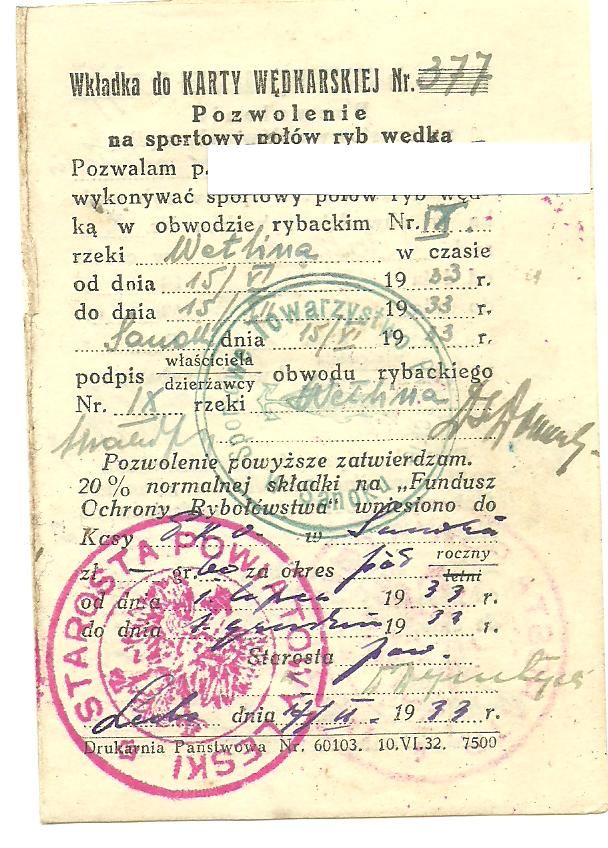 Wkładka do KARTY WĘDKARSKIEJ Nr. 377
Pozwolenie
na sportowy połów ryb wędką
Pozwalam p.
wykonywać sportowy połów ryb węd-
ką w obwodzie rybackim Nr. IX.
rzeki Wetlina w czasie
od dnia 15/VI 1933 r.
do dnia 15/ 1933 r.
Sanok dnia 15/VI 1933 r.
podpis właściciela
dzierżawcy obwodu rybackiego
Nr. IX rzeki Wetlina
Pozwolenie powyższe zatwierdzam.
20% normalnej składki na „Fundusz
Ochrony Rybołówstwa" wniesiono do
Kasy w Sanoku
zł. — gr. 60 za okres pół roczny
letni
od dnia 1 lipca 1933 r.
do dnia 1933 r.
Starosta pow.
Lesko dnia 1933 r.
Drukarnia Państwowa Nr. 60103. 10.VI.32. 7500
STAROSTA POWIATOWY LESKI
Towarzystwo
w Sanoku